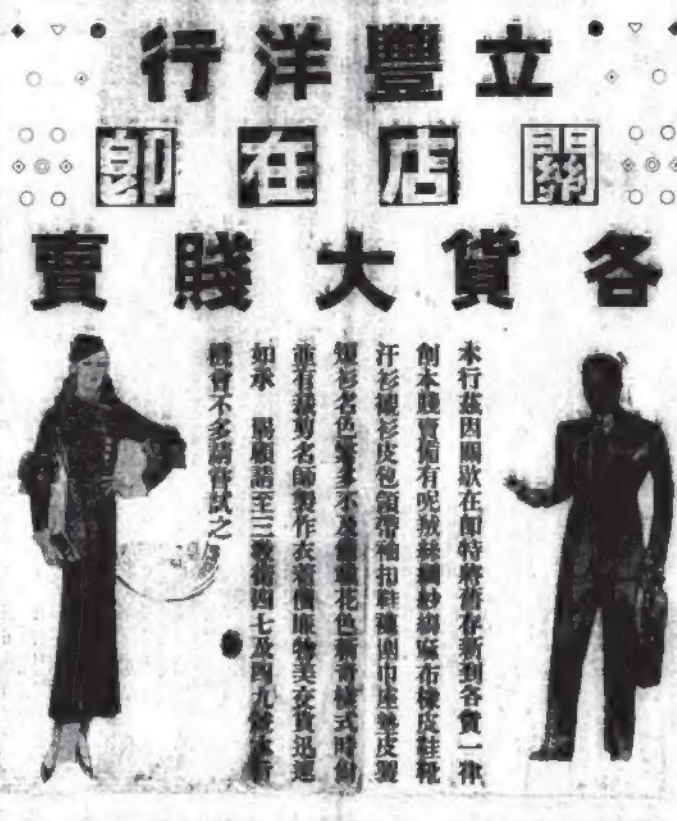 立豐洋行
關店在即
各貨大賤賣
本行茲因關歇在即特將舊存新到各貨一律
削本賤賣備有呢絨絲綢紗線麻布橡皮鞋靴
汗衫襯衫皮包領帶袖扣鞋襪圍巾座墊皮
短衫名色繁多不及 花色新奇樣式時
並有裁剪名師製作衣 價廉物美交貨迅速
如承 賜顧請至三教街四七及四九號本行
機會不多請嘗試之